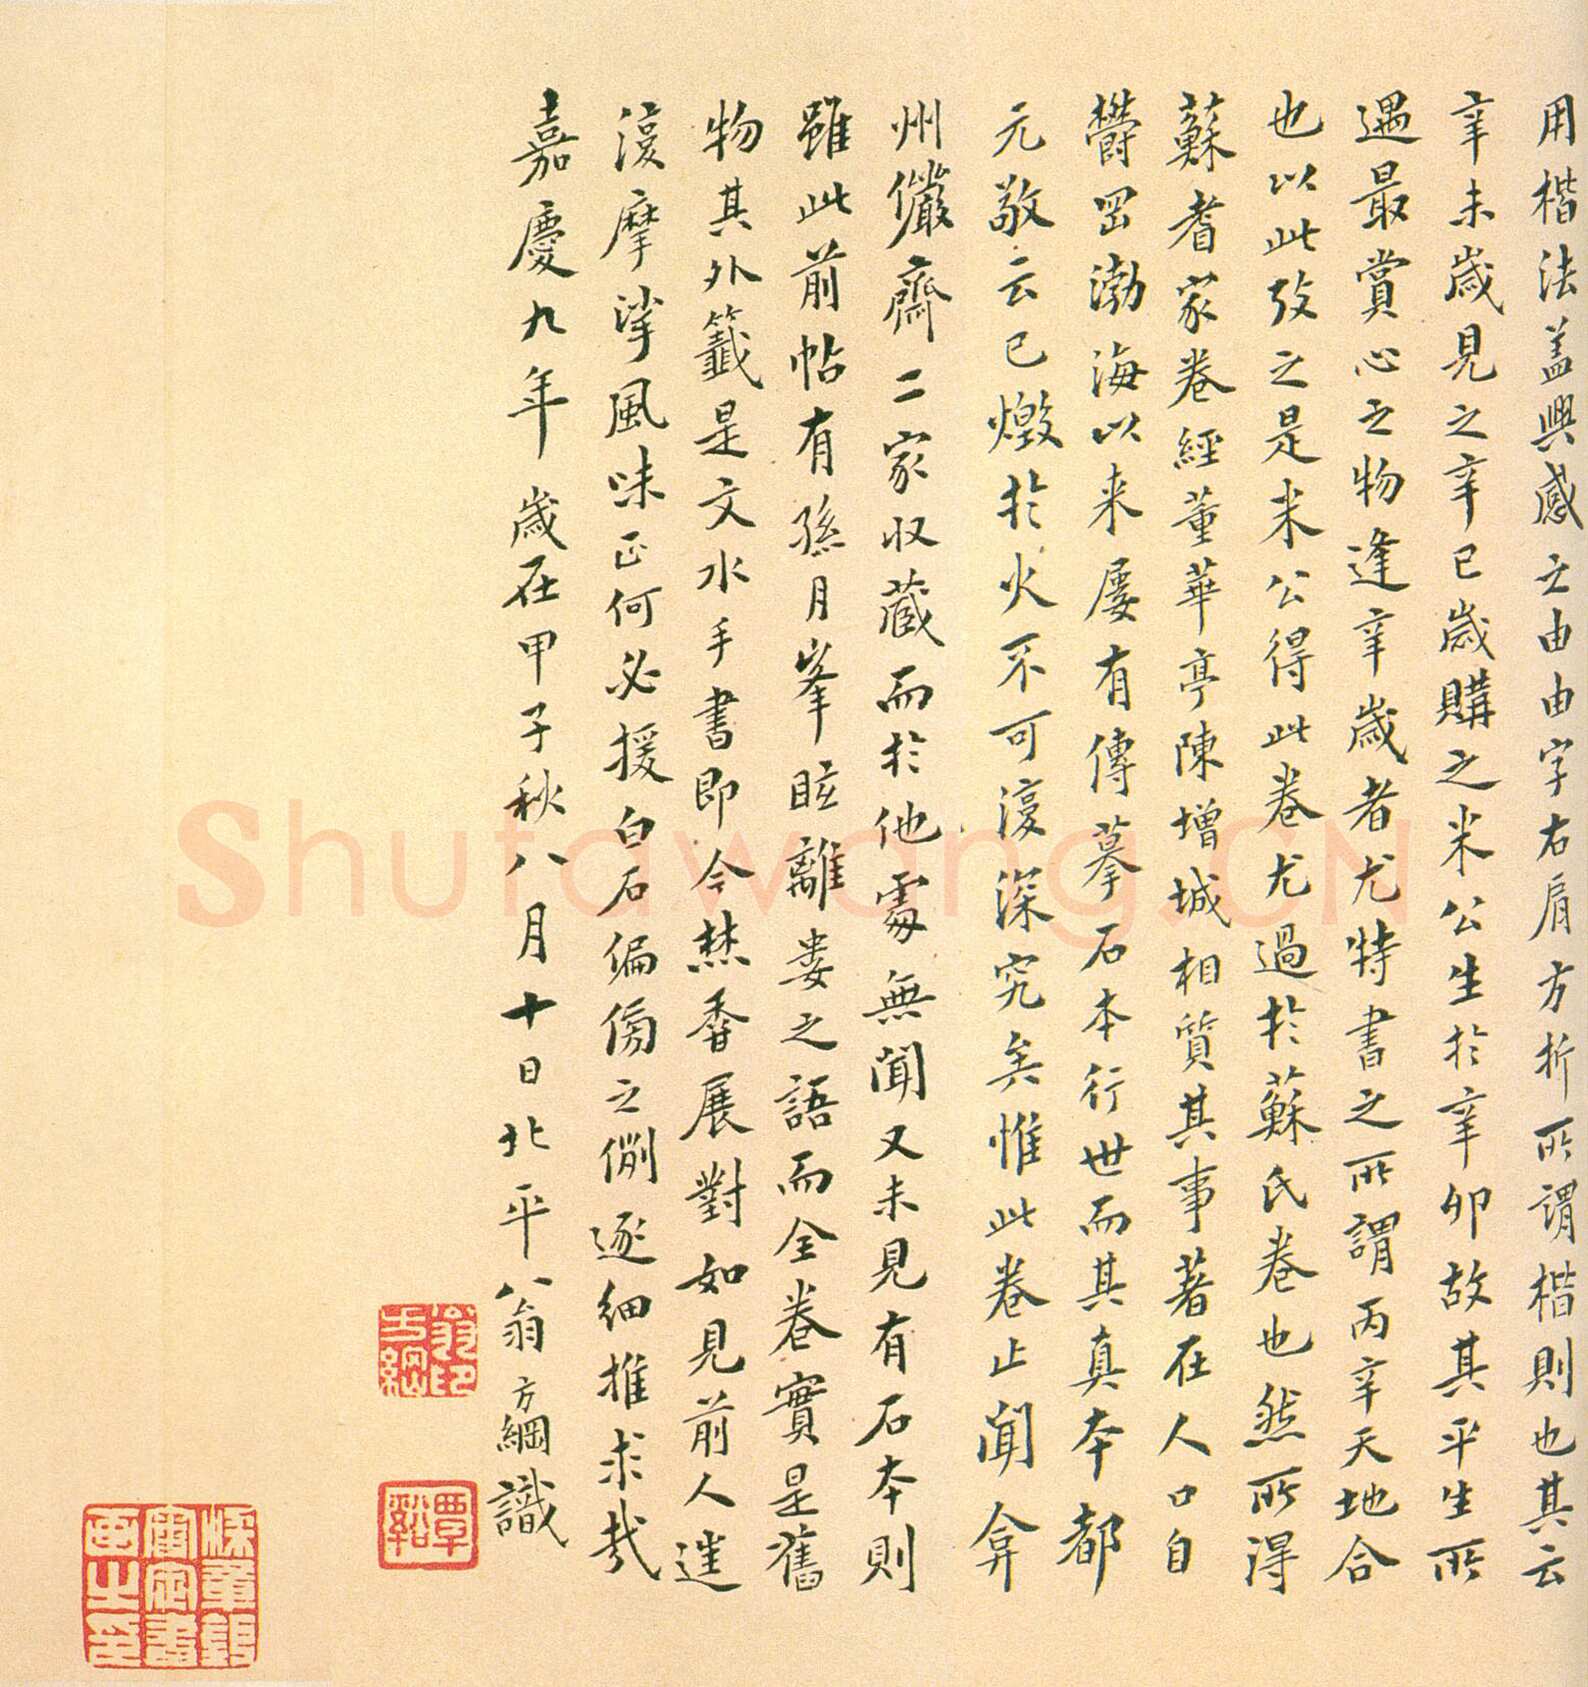 用楷法盖興感之由由字右肩方折所謂楷則也其云
辛未歲見之辛巳歲購之米公生於辛卯故其平生所
遇最賞心之物逢辛歲者尤特書之所謂丙辛天地合
也以此攷之是米公得此卷尤過於蘇氏卷也然所得
蘇耆家卷經董華亭陳增城相質其事著在人口自
欝岡渤海以来屢有傳摹石本行世而其真本都
元敬云已燬於火不可復深究矣惟此卷止聞弇
州儼齋二家收藏而於他處無聞又未見有石本則
雖此前帖有孫月峯眩離婁之語而全卷實是舊
物其外籖是文水手書即今爇香展對如見前人進
復摩挲風味正何必援白石偏傍之例逐細推求哉
嘉慶九年歲在甲子秋八月十日北平翁方綱識
翁方綱印
覃谿
Shufawang.CN